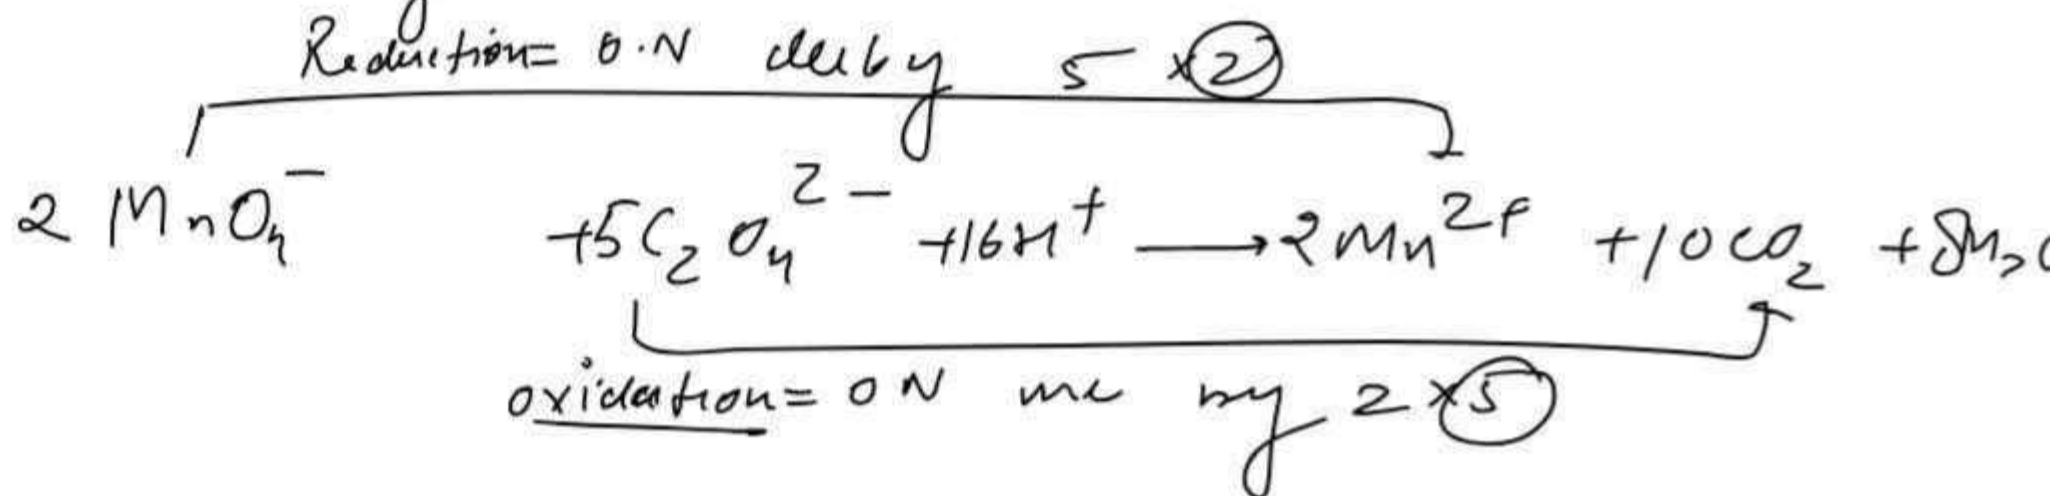 Reduction = O.N dec by 5 × 2
2 MnO₄⁻ + 5C₂O₄²⁻ + 16H⁺ → 2Mn²⁺ + 10CO₂ + 8H₂O
oxidation = ON inc by 2 × 5